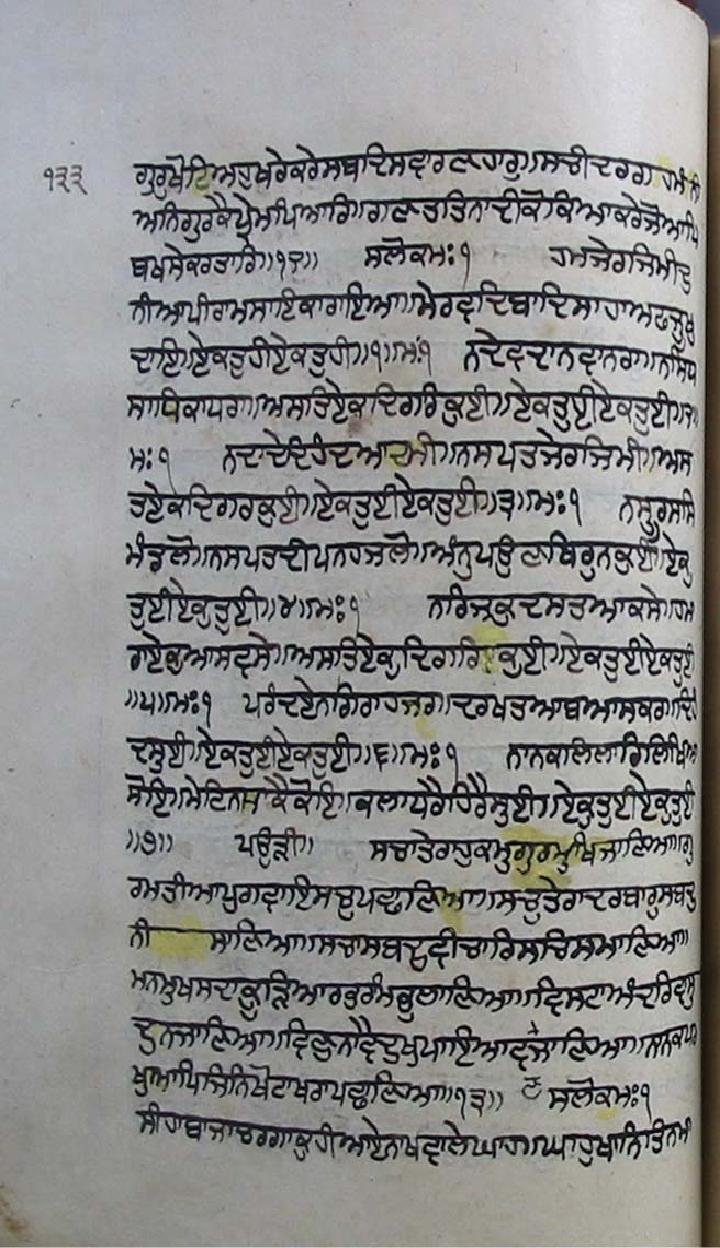 ੧੩੩
ਗੁਰੁਖੋਟਿਅਹੁਖਰੇਕਰੇਸਬਦਿਸਵਾਰਣਹਾਰੁ॥ਸਚੀਦਰਗਹਮੰਨੀ
ਅਨਿਗੁਰਕੈਪ੍ਰੇਮਪਿਆਰਿ॥ਗਣਤਤਿਨਾਦੀਕੋਕਿਆਕਰੇਜੋਆਪਿ
ਬਖਸੇਕਰਤਾਰਿ॥੧੨॥ ਸਲੋਕਮਃ੧ ਹਮਜੇਰਜਿਮੀਦੁ
ਨੀਆਪੀਰਾਮਸਾਇਕਾਰਾਇਆ॥ਮੇਰਵਦਿਬਾਦਿਸਾਹਾਅਫਜੂਖੁ
ਦਾਇ॥ਏਕਤੁਹੀਏਕਤੁਹੀ॥੧॥ਮਃ੧ ਨਦੇਵਦਾਨਵਾਨਰਾ॥ਨਸਿਧ
ਸਾਧਿਕਾਧਰਾ॥ਅਸਤਿਏਕਦਿਗਰਿਕੁਈ॥ਏਕਤੁਈਏਕਤੁਈ॥੨॥
ਮਃ੧ ਨਦਾਦੇਦਿਹੰਦਆਦਮੀ॥ਨਸਪਤਜੇਰਜਿਮੀ॥ਅਸ
ਤਏਕਦਿਗਰਕੁਈ॥ਏਕਤੁਈਏਕਤੁਈ॥੩॥ਮਃ੧ ਨਸੂਰਸਸਿ
ਮੰਡਲੋ॥ਨਸਪਤਦੀਪਨਹਜਲੋ॥ਅੰਨੁਪਉਣਥਿਰੁਨਕੁਈ॥ਏਕੁ
ਤੁਈਏਕੁਤੁਈ॥੪॥ਮਃ੧ ਨਰਿਜਕੁਦਸਤਆਕਸੇ॥ਹਮ
ਰਾਏਕੁਆਸਵਸੇ॥ਅਸਤਿਏਕੁਦਿਗਰਿਕੁਈ॥ਏਕਤੁਈਏਕਤੁਈ
॥੫॥ਮਃ੧ ਪਰੰਦਏਨਗਿਰਾਹਜਰ॥ਦਰਖਤਆਬਆਸਕਰ॥ਦਿਹੰ
ਦਸੁਈ॥ਏਕਤੁਈਏਕਤੁਈ॥੬॥ਮਃ੧ ਨਾਨਕਲਿਲਾਰਿਲਿਖਿਆ
ਸੋਇ॥ਮੇਟਿਨਸਾਕੈਕੋਇ॥ਕਲਾਧਰੈਹਿਰੈਸੁਈ॥ਏਕੁਤੁਈਏਕੁਤੁਈ
॥੭॥ ਪਉੜੀ॥ ਸਚਾਤੇਰਾਹੁਕਮੁਗੁਰਮੁਖਿਜਾਣਿਆ॥ਗੁ
ਰਮਤੀਆਪੁਗਵਾਇਸਚੁਪਛਾਣਿਆ॥ਸਚੁਤੇਰਾਦਰਬਾਰੁਸਬਦੁ
ਨੀ ਸਾਣਿਆ॥ਸਚਾਸਬਦੁਵੀਚਾਰਿਸਚਿਸਮਾਣਿਆ॥
ਮਨਮੁਖਸਦਾਕੂੜਿਆਰਭਰਮਿਭੁਲਾਣਿਆ॥ਵਿਸਟਾਅੰਦਰਿਵਾਸੁ
ਦੁਨਜਾਣਿਆ॥ਵਿਣੁਨਾਵੈਦੁਖੁਪਾਇਆਵਣਜਾਣਿਆ॥ਨਾਨਕਪਾਰ
ਖੁਆਪਿਜਿਨਿਖੋਟਾਖਰਾਪਛਾਣਿਆ॥੧੩॥ ਸਲੋਕਮਃ੧
ਸੀਹਾਬਾਜਾਚਰਗਾਕੁਹੀਆਏਨਾਖਵਾਲੇਘਾਹ॥ਘਾਹੁਖਾਨਿਤਿਨਮੰ